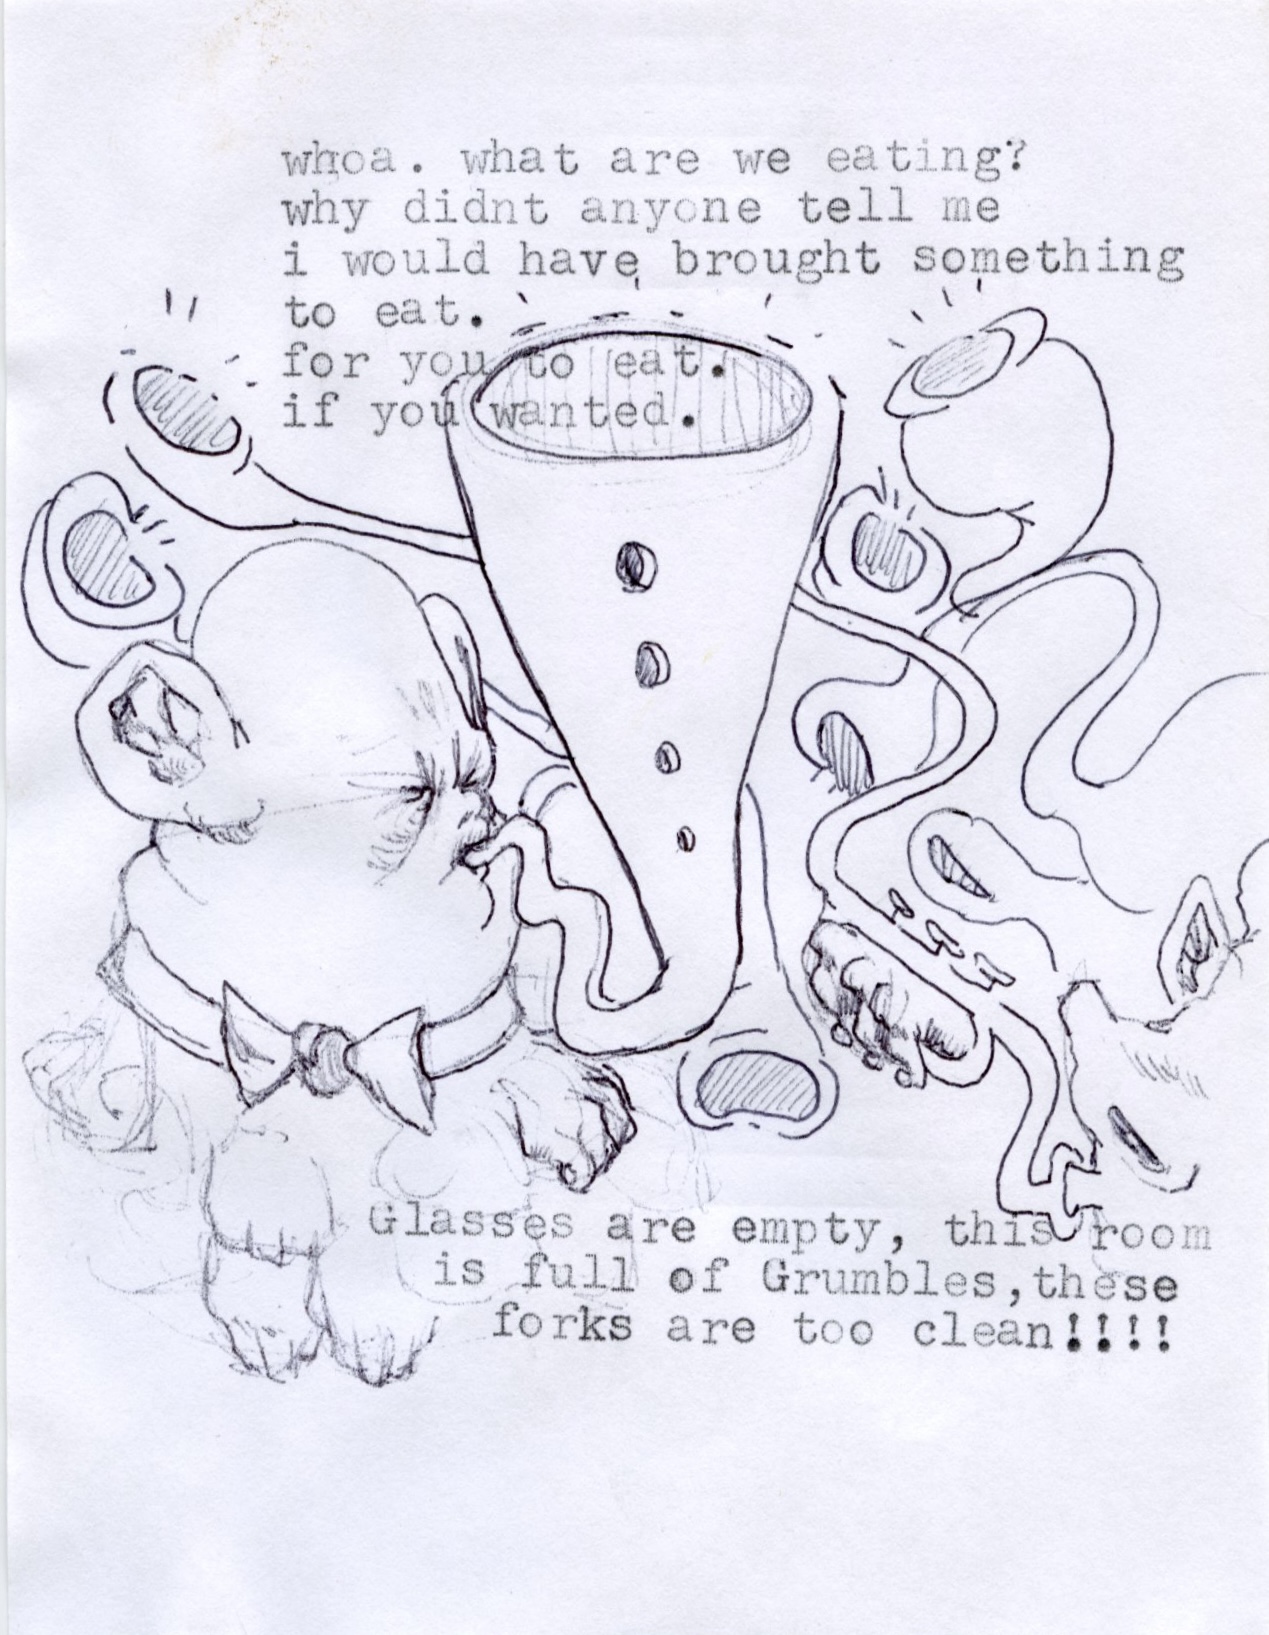 whoa. what are we eating?
why didnt anyone tell me
i would have brought something
to eat.
for you to eat.
if you wanted.
Glasses are empty, this room
is full of Grumbles,these
forks are too clean!!!!